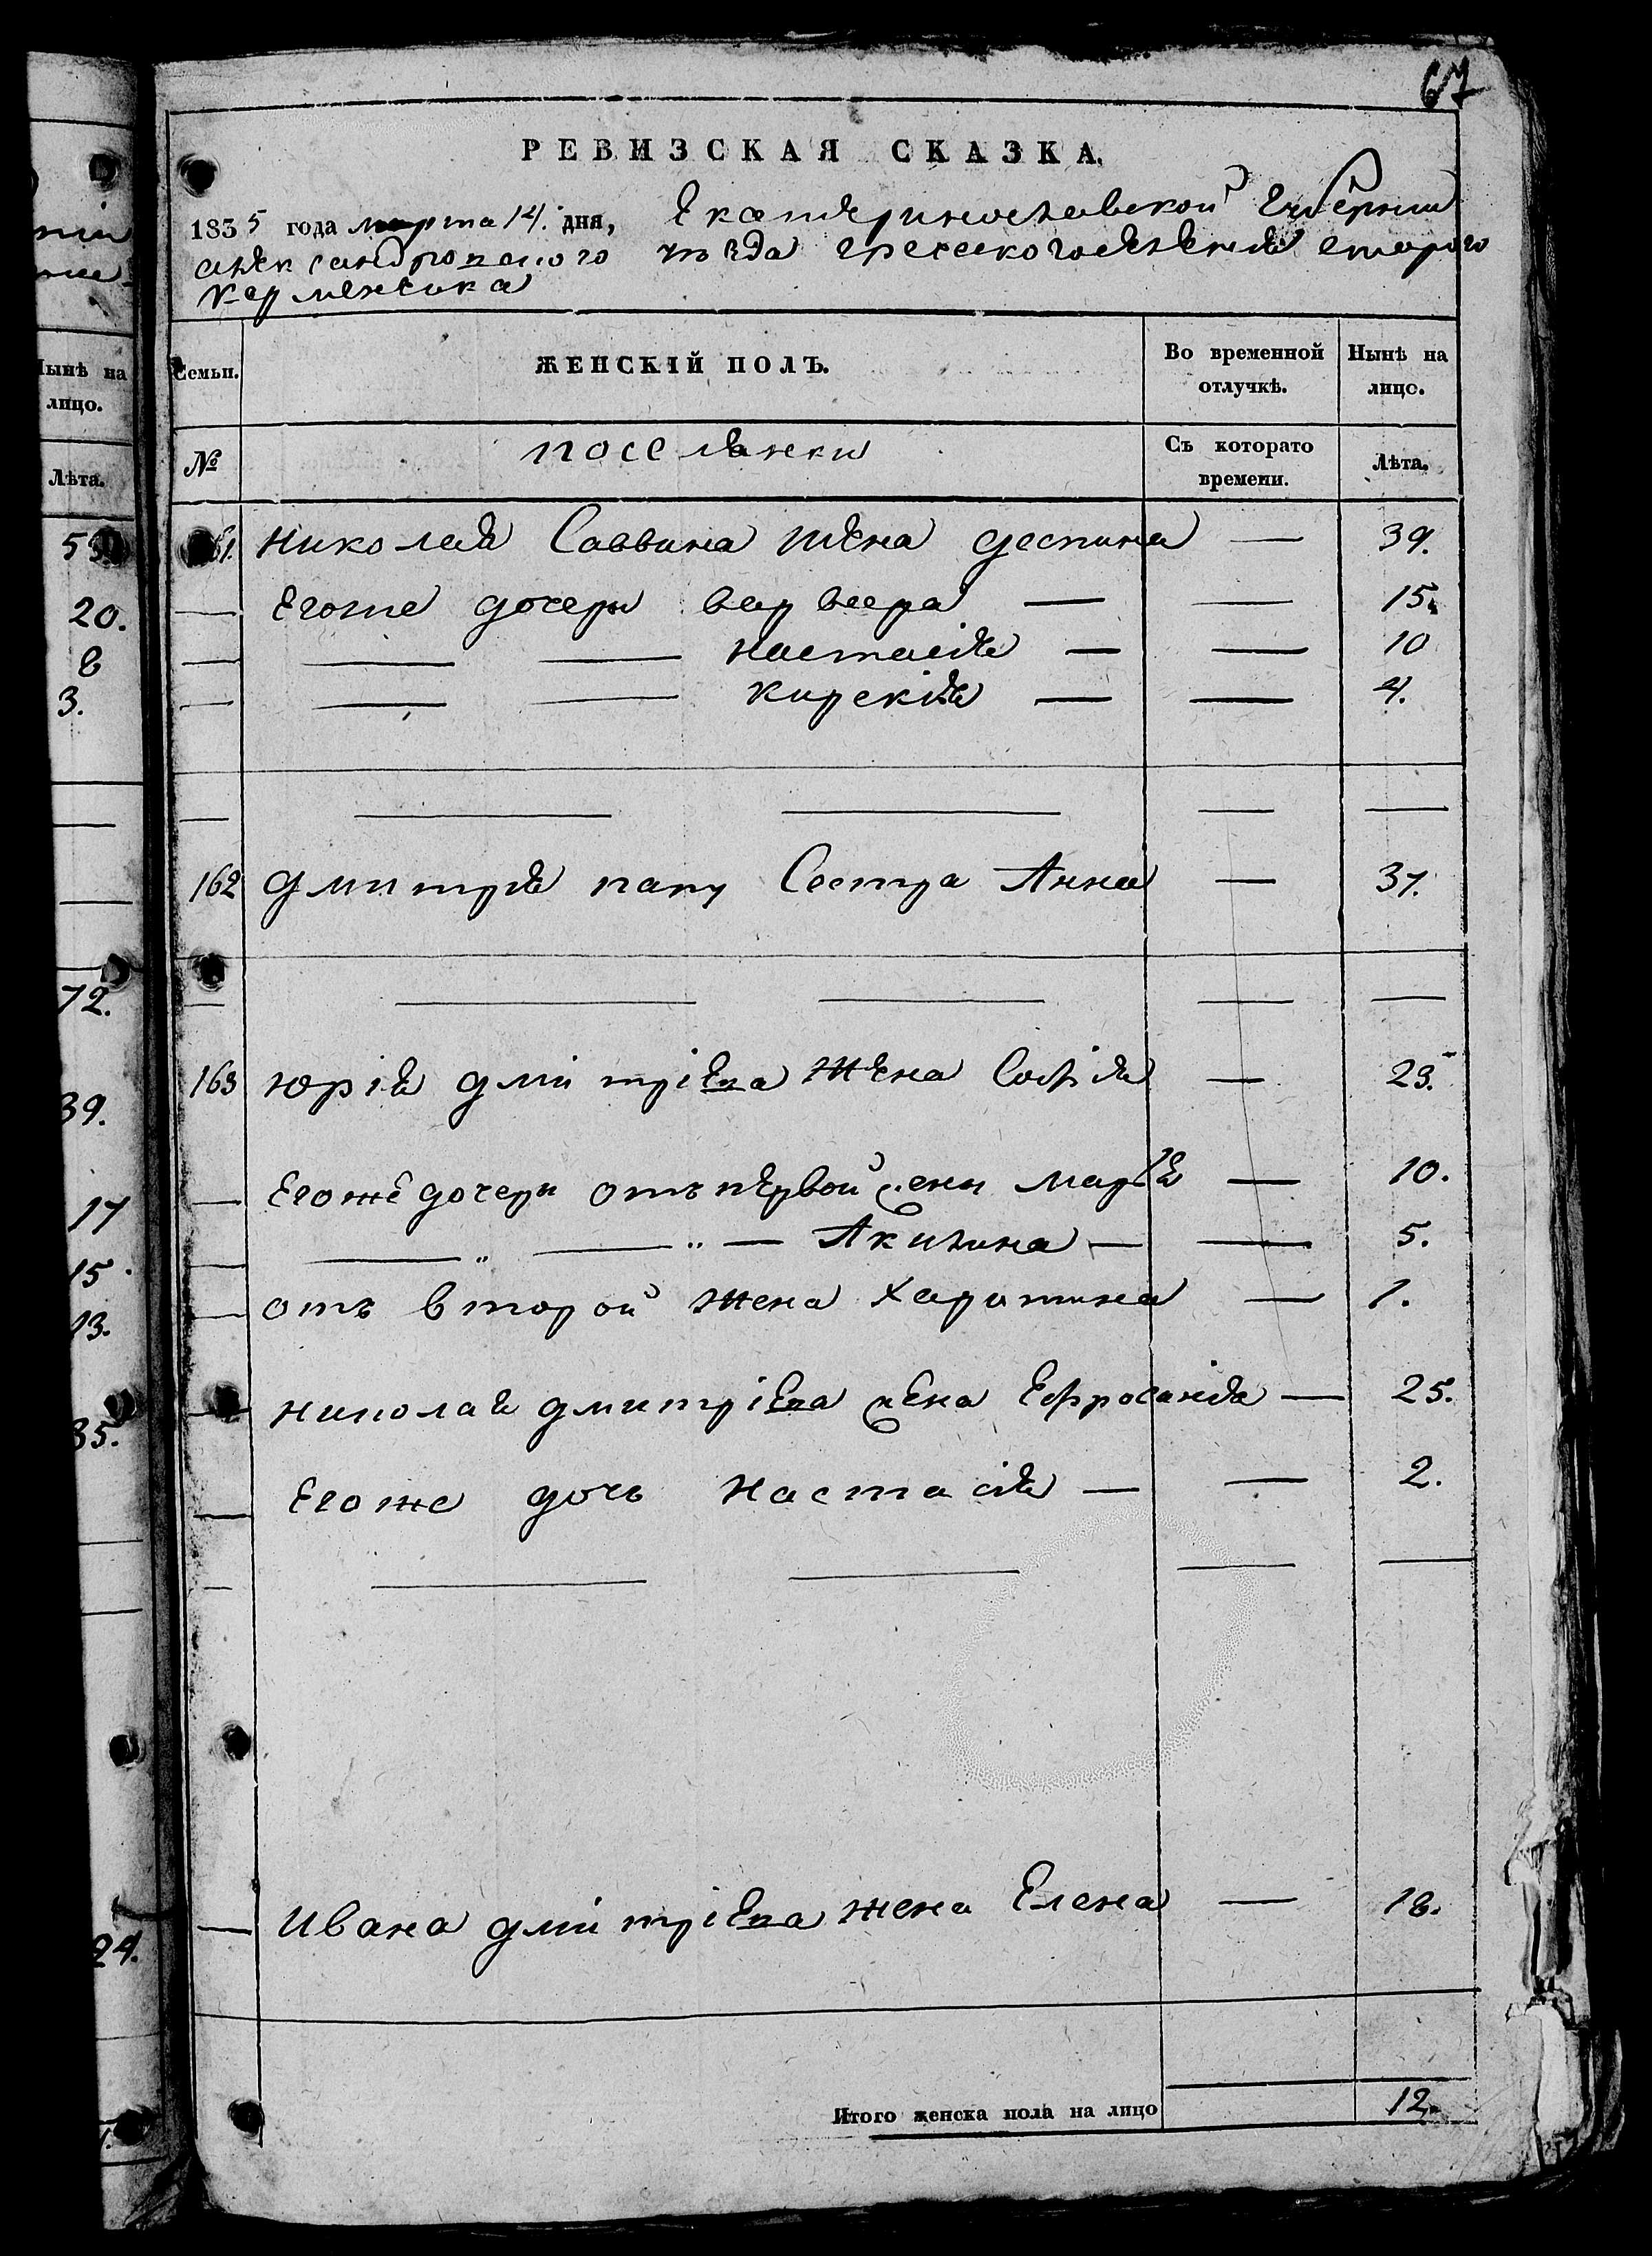 67
РЕВИЗСКАЯ СКАЗКА,
1835 года марта 14. дня, Екатеринославской Губернии
александровского уѣзда греческоселения старого
Керменчика
Нынѣ на лицо.
Лѣта.
20.
8
3.
72.
39.
17
15.
13.
35.
24.
Семьи. ЖЕНСКІЙ ПОЛЪ. Во временной отлучкѣ. Нынѣ на лицо.
№ поселянки Съ котораго времени. Лѣта.
161. николая Саввина жена деспина — 39.
— Егоже дочери варвара — — 15.
— — — настасія — — 10
— — — кирекія — — 4.
162 дмитрия папу Сестра Анна — 37.
163 юрія дмитріева жена Софія — 23.
— Егоже дочери отъ первой жены марія — 10.
— — „ — „ — Акилина — — 5.
— отъ второй жена харитина — 1.
— николая дмитріева жена Ефросинія — 25.
— Егоже дочь настасія — — 2.
— Ивана дмитріева жена Елена — 18.
Итого женска пола на лицо 12.